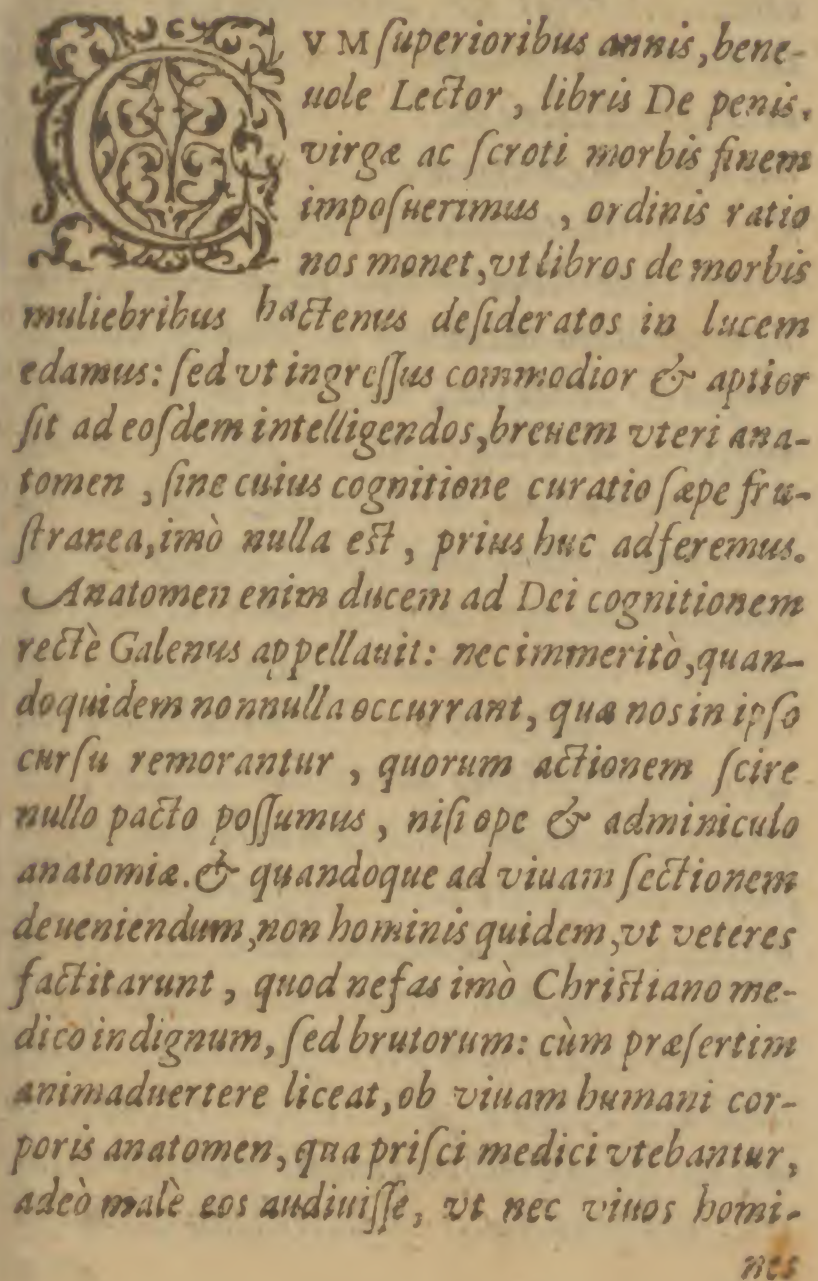 CVM ſuperioribus annis, bene-
uole Lector, libris De penis,
virgæ ac ſcroti morbis finem
impoſuerimus, ordinis ratio
nos monet, vt libros de morbis
muliebribus hactenus deſideratos in lucem
edamus: ſed vt ingreſſus commodior & aptior
ſit ad eoſdem intelligendos, breuem vteri ana-
tomen, ſine cuius cognitione curatio ſæpe fru-
ſtranea, imò nulla eſt, prius huc adferemus.
Anatomen enim ducem ad Dei cognitionem
rectè Galenus appellauit: nec immeritò, quan-
doquidem nonnulla occurrant, quæ nos in ipſo
curſu remorantur, quorum actionem ſcire
nullo pacto poſſumus, niſi ope & adminiculo
anatomiæ. & quandoque ad viuam ſectionem
deueniendum, non hominis quidem, vt veteres
factitarunt, quod nefas imò Chriſtiano me-
dico indignum, ſed brutorum: cùm præſertim
animaduertere liceat, ob viuam humani cor-
poris anatomen, qua priſci medici vtebantur,
adeò malè eos audiuiſſe, vt nec viuos homi-
nes